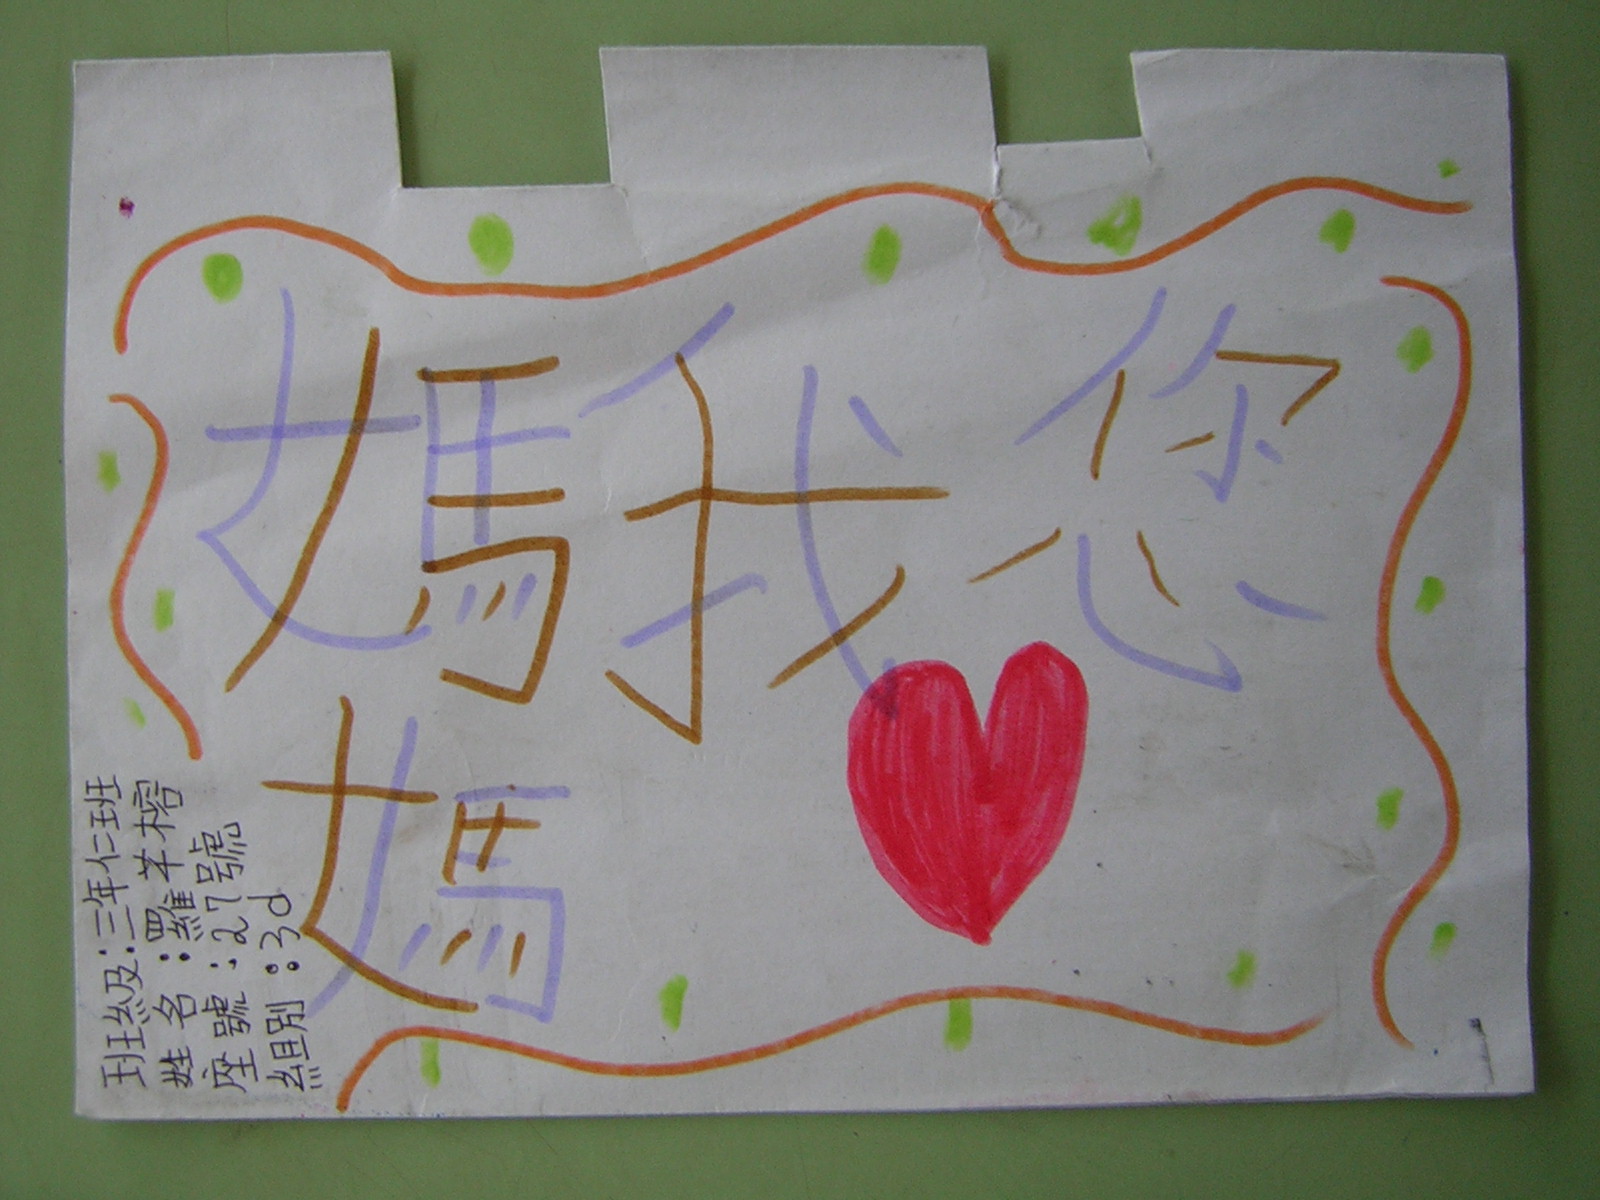 媽媽
我您
班級:三年仁班
姓名:羅芊榕
座號:27號
組別:3d